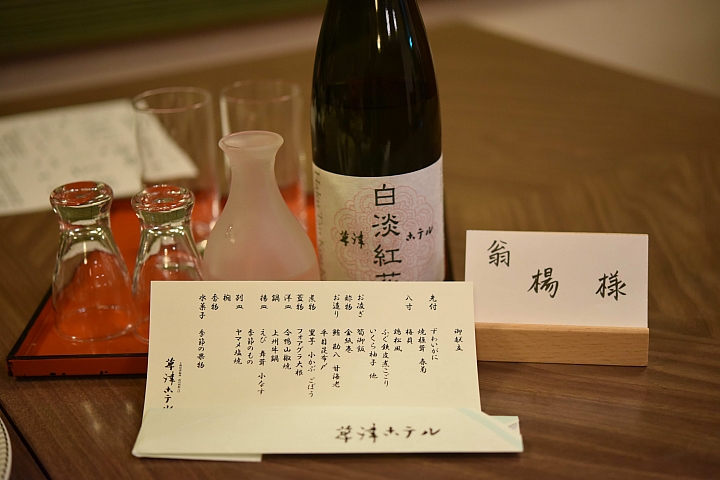 白淡紅
草津ホテル
翁
楊 様
御献立
先付 ずわいがに
焼椎茸 春菊
八寸 梅貝
鶏松風
ふぐ鉄皮煮こごり
いくら柚子 他
お凌ぎ 筍御飯
鮨物 金紙巻
お造り 鮪 勘八 甘海老
平目昆布〆
煮物 里芋 小かぶ ごぼう
蓋物 フォアグラ大根
洋皿 合鴨山椒焼
鍋 上州牛鍋
揚皿 えび 舞茸 小なす
別皿 ヤマメ塩焼
椀 季節のもの
香物
水菓子 季節の果物
草津ホテル
草津ホテル